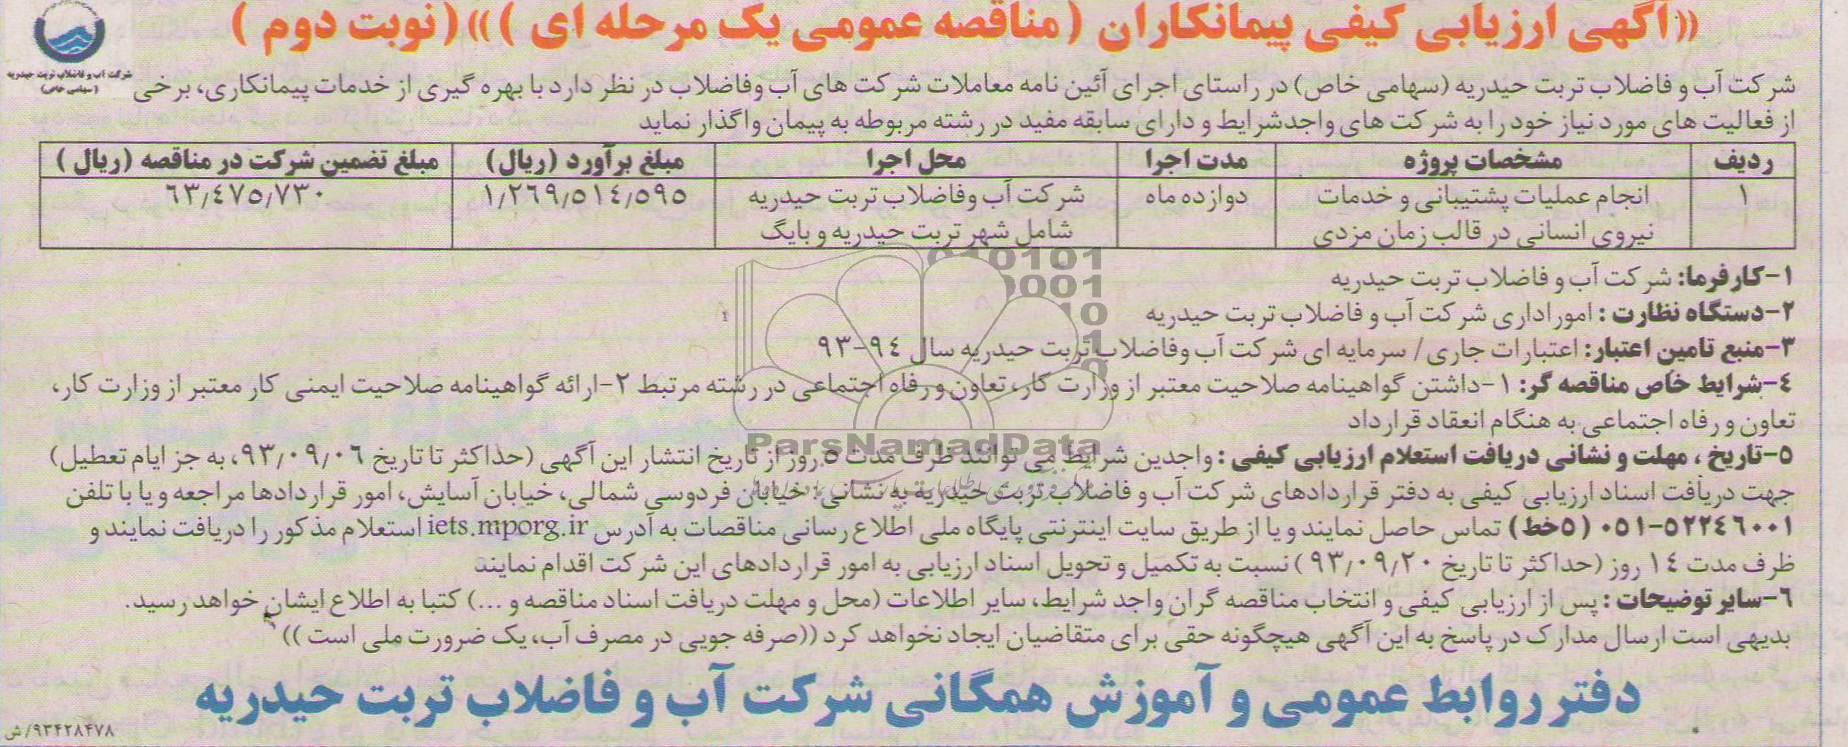 ((آگهی ارزیابی کیفی پیمانکاران (مناقصه عمومی یک مرحله ای ))) (نوبت دوم )
شرکت آب و فاضلاب تربت حیدریه
(سهامی خاص)
شرکت آب و فاضلاب تربت حیدریه (سهامی خاص) در راستای اجرای آئین نامه معاملات شرکت های آب وفاضلاب در نظر دارد با بهره گیری از خدمات پیمانکاری، برخی
از فعالیت های مورد نیاز خود را به شرکت های واجدشرایط و دارای سابقه مفید در رشته مربوطه به پیمان واگذار نماید
ردیف مشخصات پروژه مدت اجرا محل اجرا مبلغ برآورد (ریال) مبلغ تضمین شرکت در مناقصه (ریال )
۱ انجام عملیات پشتیبانی و خدمات دوازده ماه شرکت آب وفاضلاب تربت حیدریه ۱/۲۶۹/۵۱۴/۵۹۵ ۶۳/۴۷۵/۷۳۰
نیروی انسانی در قالب زمان مزدی شامل شهر تربت حیدریه و بایگ
۱-کارفرما: شرکت آب و فاضلاب تربت حیدریه
۲-دستگاه نظارت : امور اداری شرکت آب و فاضلاب تربت حیدریه
۳-منبع تامین اعتبار: اعتبارات جاری/ سرمایه ای شرکت آب وفاضلاب تربت حیدریه سال ۹۴-۹۳
۴-شرایط خاص مناقصه گر: ۱-داشتن گواهینامه صلاحیت معتبر از وزارت کار، تعاون و رفاه اجتماعی در رشته مرتبط ۲-ارائه گواهینامه صلاحیت ایمنی کار معتبر از وزارت کار،
تعاون و رفاه اجتماعی به هنگام انعقاد قرارداد
۵-تاریخ ، مهلت و نشانی دریافت استعلام ارزیابی کیفی : واجدین شرایط می توانند ظرف مدت ۵ روز از تاریخ انتشار این آگهی (حداکثر تا تاریخ ۹۳/۰۹/۰۶، به جز ایام تعطیل)
جهت دریافت اسناد ارزیابی کیفی به دفتر قراردادهای شرکت آب و فاضلاب تربت حیدریه به نشانی : خیابان فردوسی شمالی، خیابان آسایش، امور قراردادها مراجعه و یا با تلفن
۰۵۱-۵۲۲۴۶۰۰۱ (۵خط) تماس حاصل نمایند و یا از طریق سایت اینترنتی پایگاه ملی اطلاع رسانی مناقصات به آدرس iets.mporg.ir استعلام مذکور را دریافت نمایند و
ظرف مدت ۱۴ روز (حداکثر تا تاریخ ۹۳/۰۹/۲۰ ) نسبت به تکمیل و تحویل اسناد ارزیابی به امور قراردادهای این شرکت اقدام نمایند
۶-سایر توضیحات : پس از ارزیابی کیفی و انتخاب مناقصه گران واجد شرایط، سایر اطلاعات (محل و مهلت دریافت اسناد مناقصه و ...) کتبا به اطلاع ایشان خواهد رسید.
بدیهی است ارسال مدارک در پاسخ به این آگهی هیچگونه حقی برای متقاضیان ایجاد نخواهد کرد ((صرفه جویی در مصرف آب، یک ضرورت ملی است ))
دفتر روابط عمومی و آموزش همگانی شرکت آب و فاضلاب تربت حیدریه
۹۳۴۲۸۴۷۸/ش
ParsNamadData